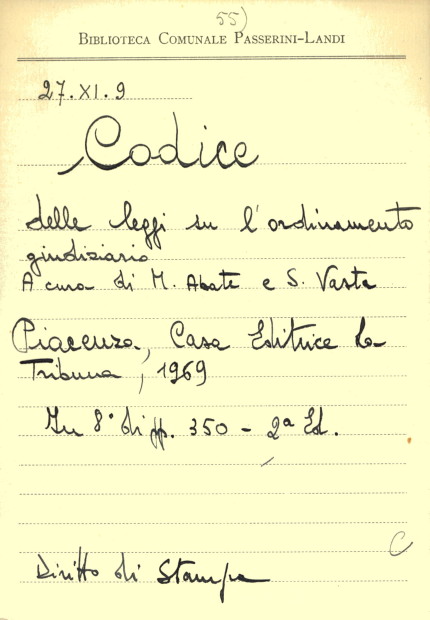 55)
BIBLIOTECA COMUNALE PASSERINI-LANDI
27.XI.9
Codice
delle leggi su l'ordinamento
giudiziario
A cura di M. Abate e S. Vasta
Piacenza, Casa Editrice La
Tribuna, 1969
In 8° di pp. 350 - 2a Ed.
C
Diritto di Stampa